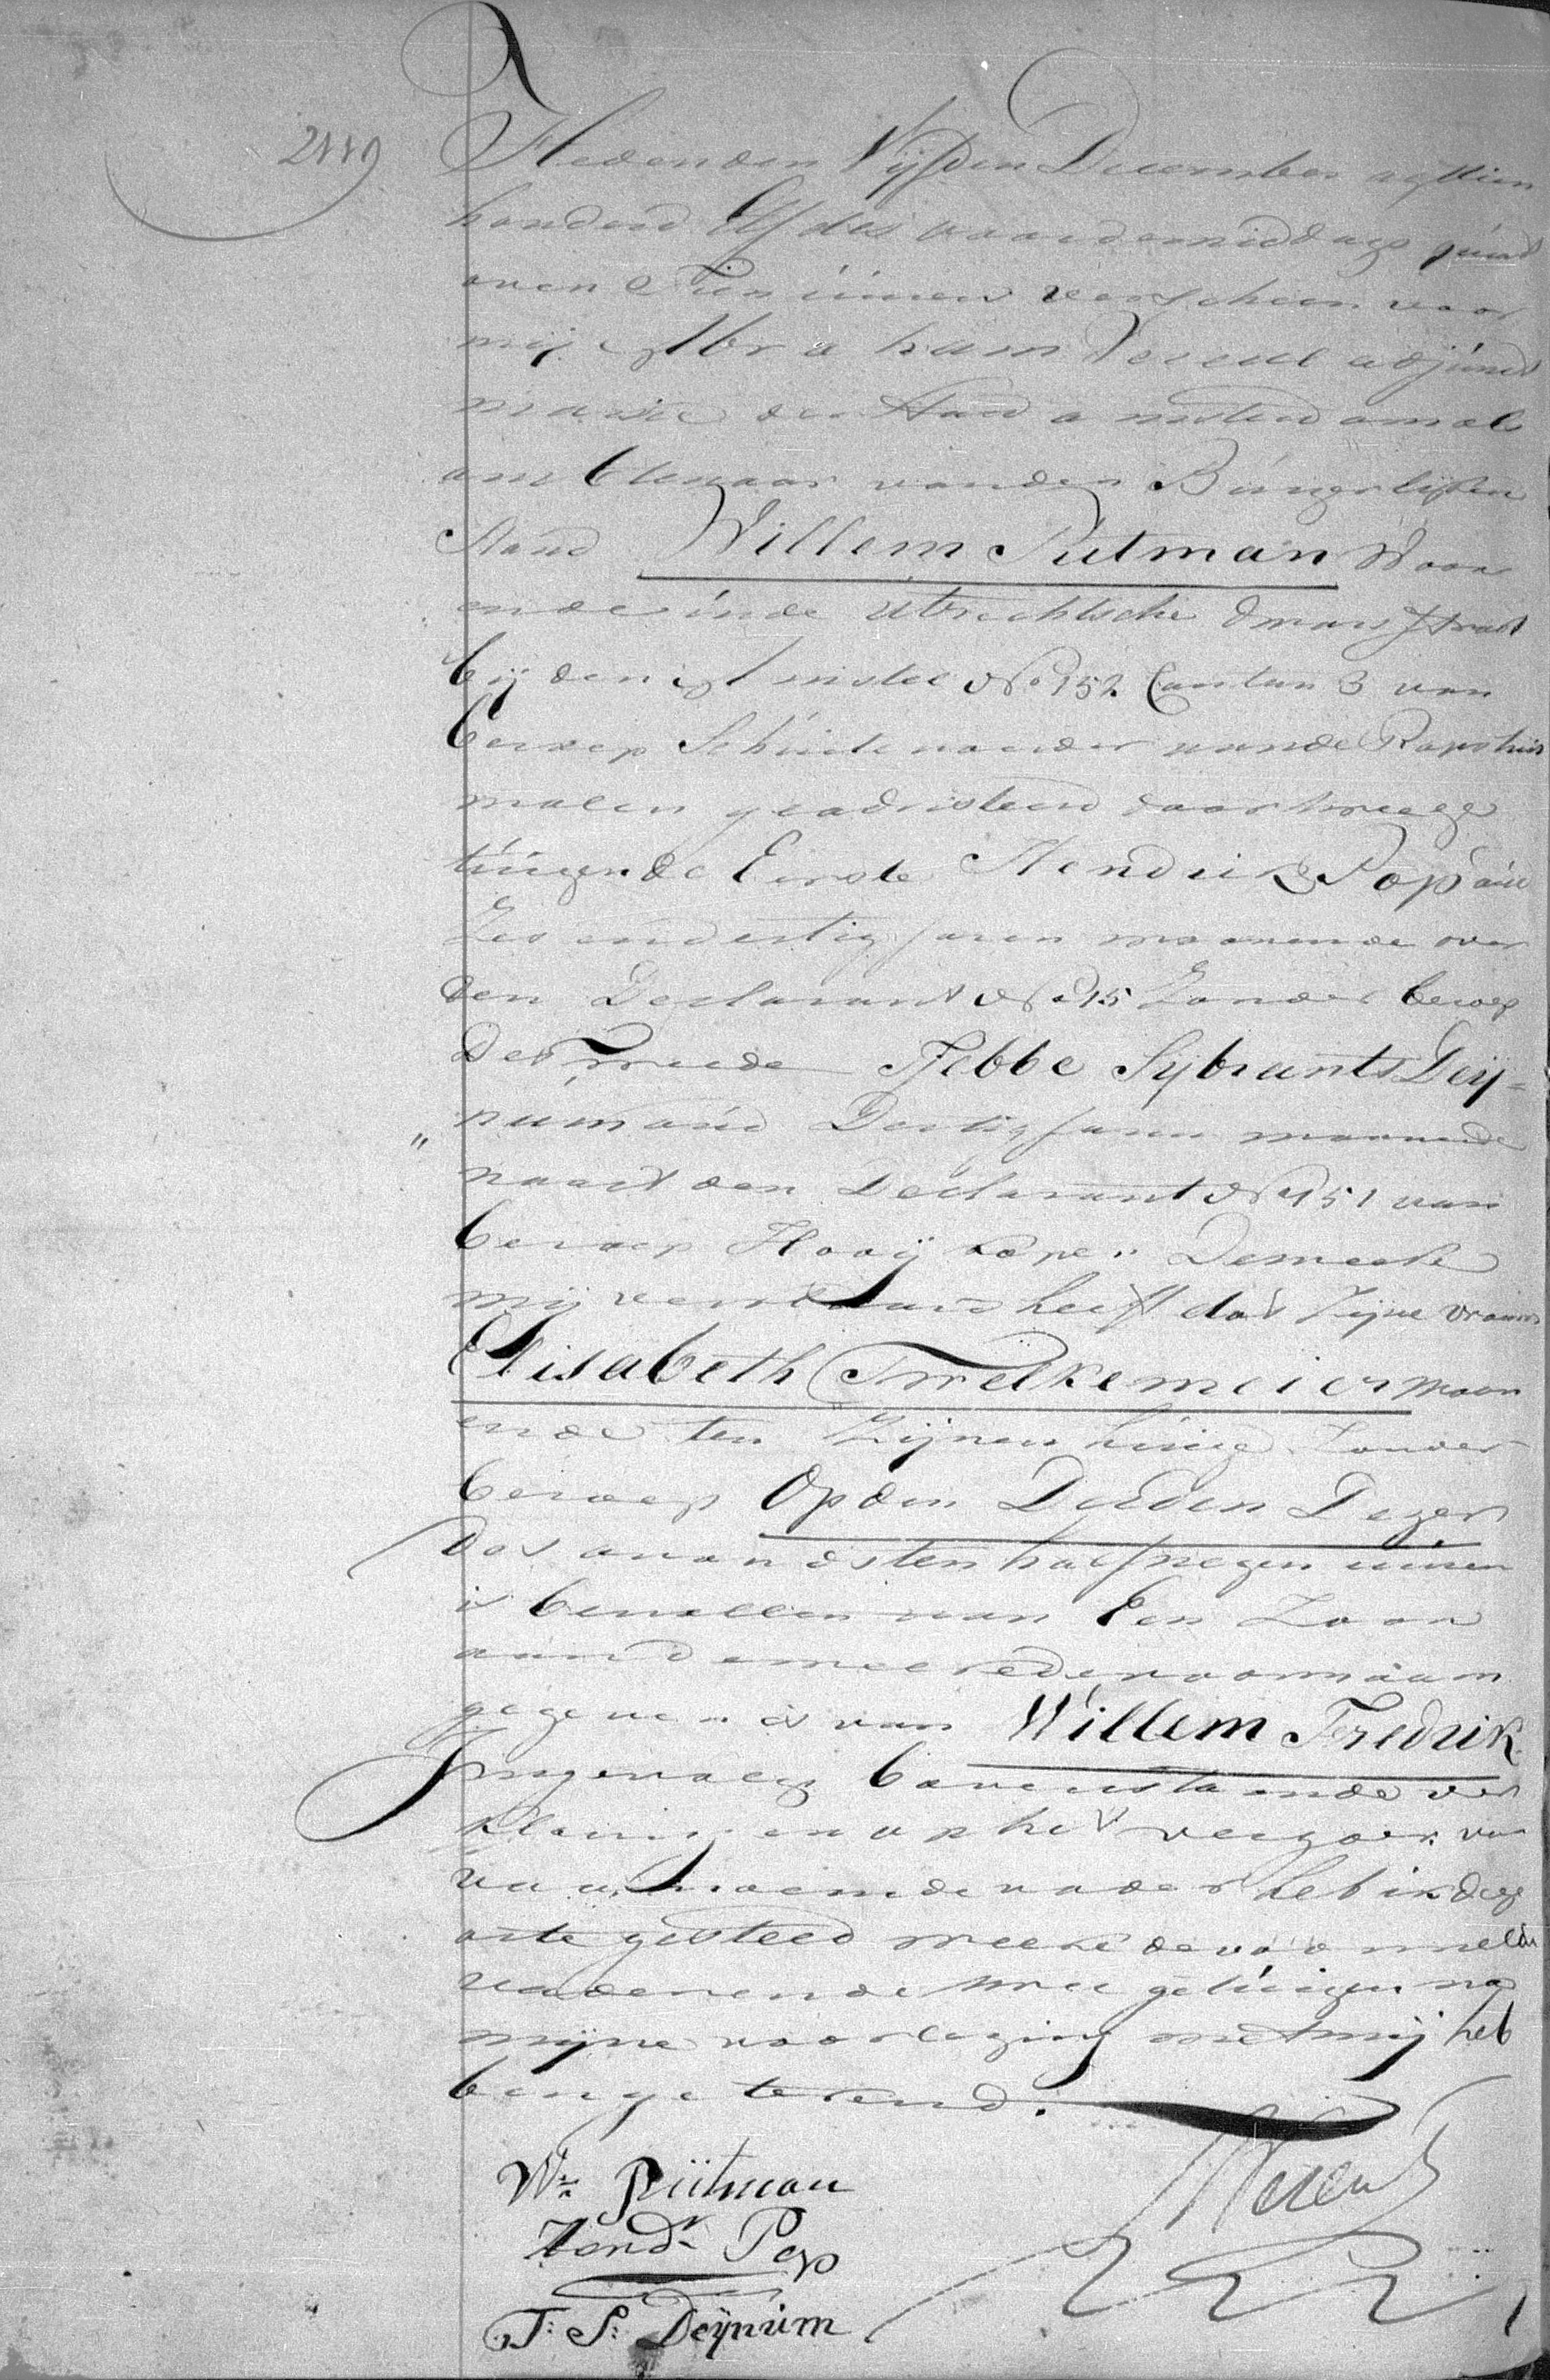 2119
Heden den Vijfden December agttien
honderd Elf des voordemiddags quart
over Tien uuren verscheen voor
mij Abraham Vereul adjunct
maire der Stad amsterdam als
ambtenaar van den Burgerlijken
Stand Willem Putman Woon
ende inde Utrechtsche dwars straat
bij den amstel No 152 Canton 3 van
beroep Schuite voerder van de
malen geadsisteerd door twee ge
tuigen de Eerste Hendrik Pop oud
Zes en dertig Jaren woonende over
den Declarant No 15 Zonder beroep
De Tweede Tjebbe Sybrants Deij=
" num oud Dertig Jaren woonende
naast den Declarant No 151 van
beroep Hooij koper. Dewelke
mij verklaard heeft dat Zijne vrouw
Elisabeth Twelkemeier woon
ende ten Zijnen huize Zonder
beroep Op den Derden Dezer
des avonds ten half negen uuren
is bevallen van Een Zoon
aan dewelke de voornaam
gegeven is van Willem Fredrik.
Ingevolge bovenstaande ver
klaring en op het verzoek van
voornoemde vader heb ik deze
acte gesteld welke de voormelde
vader en de twee getuigen na
mijne voorlezing met mij heb
ben getekend.
Wm Pütman
Hendk Pop
Vereul
T: S: Deijnum